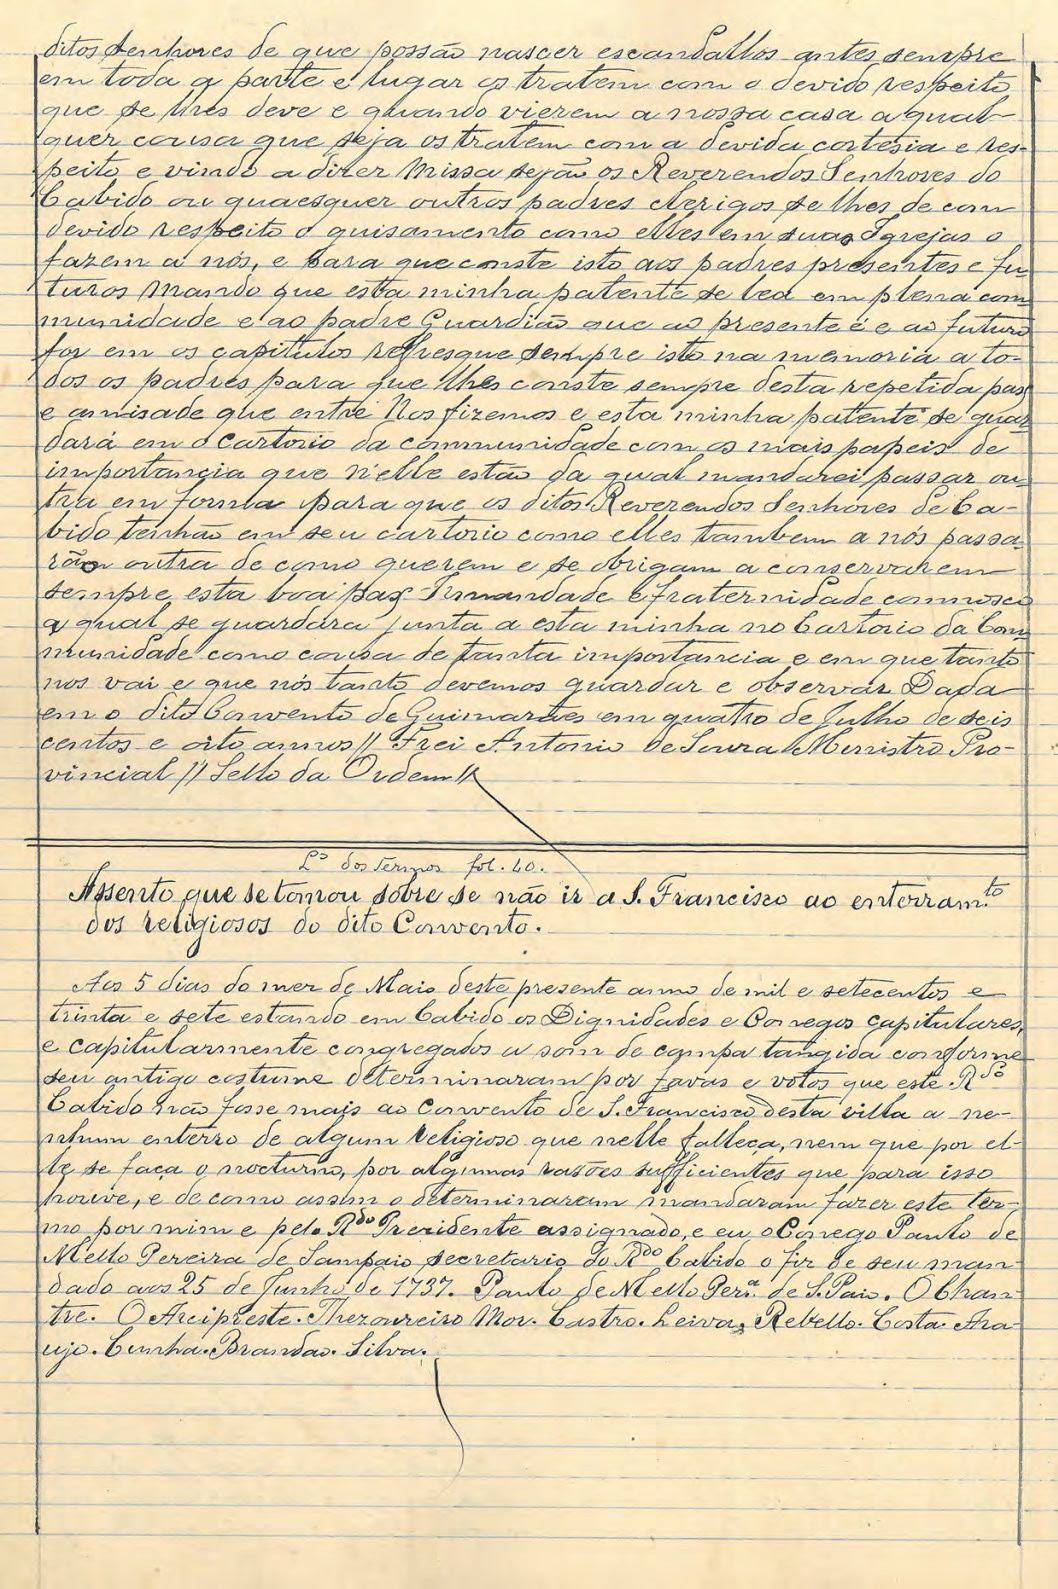 ditos senhores de que possão nascer escandallos antes sempre
em toda a parte e lugar os tratem com o devido respeito
que se lhes deve e quando vierem a nossa casa a qual-
quer cousa que seja os tratem com a devida cortesia e res-
peito e vindo a dizer Missa sejão os Reverendos Senhores do
Cabido ou quaesquer outros padres clerigos se lhes de com
devido respeito o guisamento como elles em suas Igrejas o
fazem a nós, e para que conste isto aos padres presentes e fu-
turos Mando que esta minha patente se lea em plena com
munidade e ao padre Guardião que ao presente é e ao futuro
for em os capitulos refresque sempre isto na memoria a to-
dos os padres para que lhes conste sempre desta repetida pas
e amisade que entre Nos fizemos e esta minha patente se guar
dará em o Cartorio da communidade com os mais papeis de
importancia que n'elle estão da qual mandarei passar ou-
tra em forma para que os ditos Reverendos Senhores de Ca-
bido tenhão em seu cartorio como elles tambem a nós passa-
rão outra de como querem e se obrigam a conservarem
sempre esta boa paz Irmandade e fraternidade comnosco
a qual se guardara junta a esta minha no Cartorio da Com
munidade como cousa de tanta importancia e em que tanto
nos vai e que nós tanto devemos guardar e observar Dada
em o dito Convento de Guimarães em quatro de Julho de seis
centos e oito annos // Frei Antonio de Souza Menistro Pro-
vincial // Sello da Ordem //
Lº dos termos fol. 40.
Assento que se tomou sobre se não ir a S. Francisco ao enterram.to
dos religiosos do dito Convento.
Aos 5 dias do mez de Maio deste presente anno de mil e setecentos e
trinta e sete estando em Cabido os Dignidades e Conegos capitulares,
e capitularmente congregados a som de campa tangida conforme
seu antigo costume determinaram por favas e votos que este R.do
Cabido não fosse mais ao Convento de S. Francisco desta villa a ne-
nhum enterro de algum religioso que nelle falleça, nem que por el-
le se faça o nocturno, por algumas rasões sufficientes que para isso
houve, e de como assim o determinaram mandaram fazer este ter-
mo por mim e pelo R.do Presidente assignado, e eu o Conego Paulo de
Mello Pereira de Sampaio secretario do R.do Cabido o fiz de seu man-
dado aos 25 de Junho de 1737. Paulo de Mello Per.a de S. Paio. O Chan-
tre. O Arcipreste. Thezoureiro Mor. Castro. Leiva, Rebello. Costa. Ara-
ujo. Cunha. Brandão. Silva.